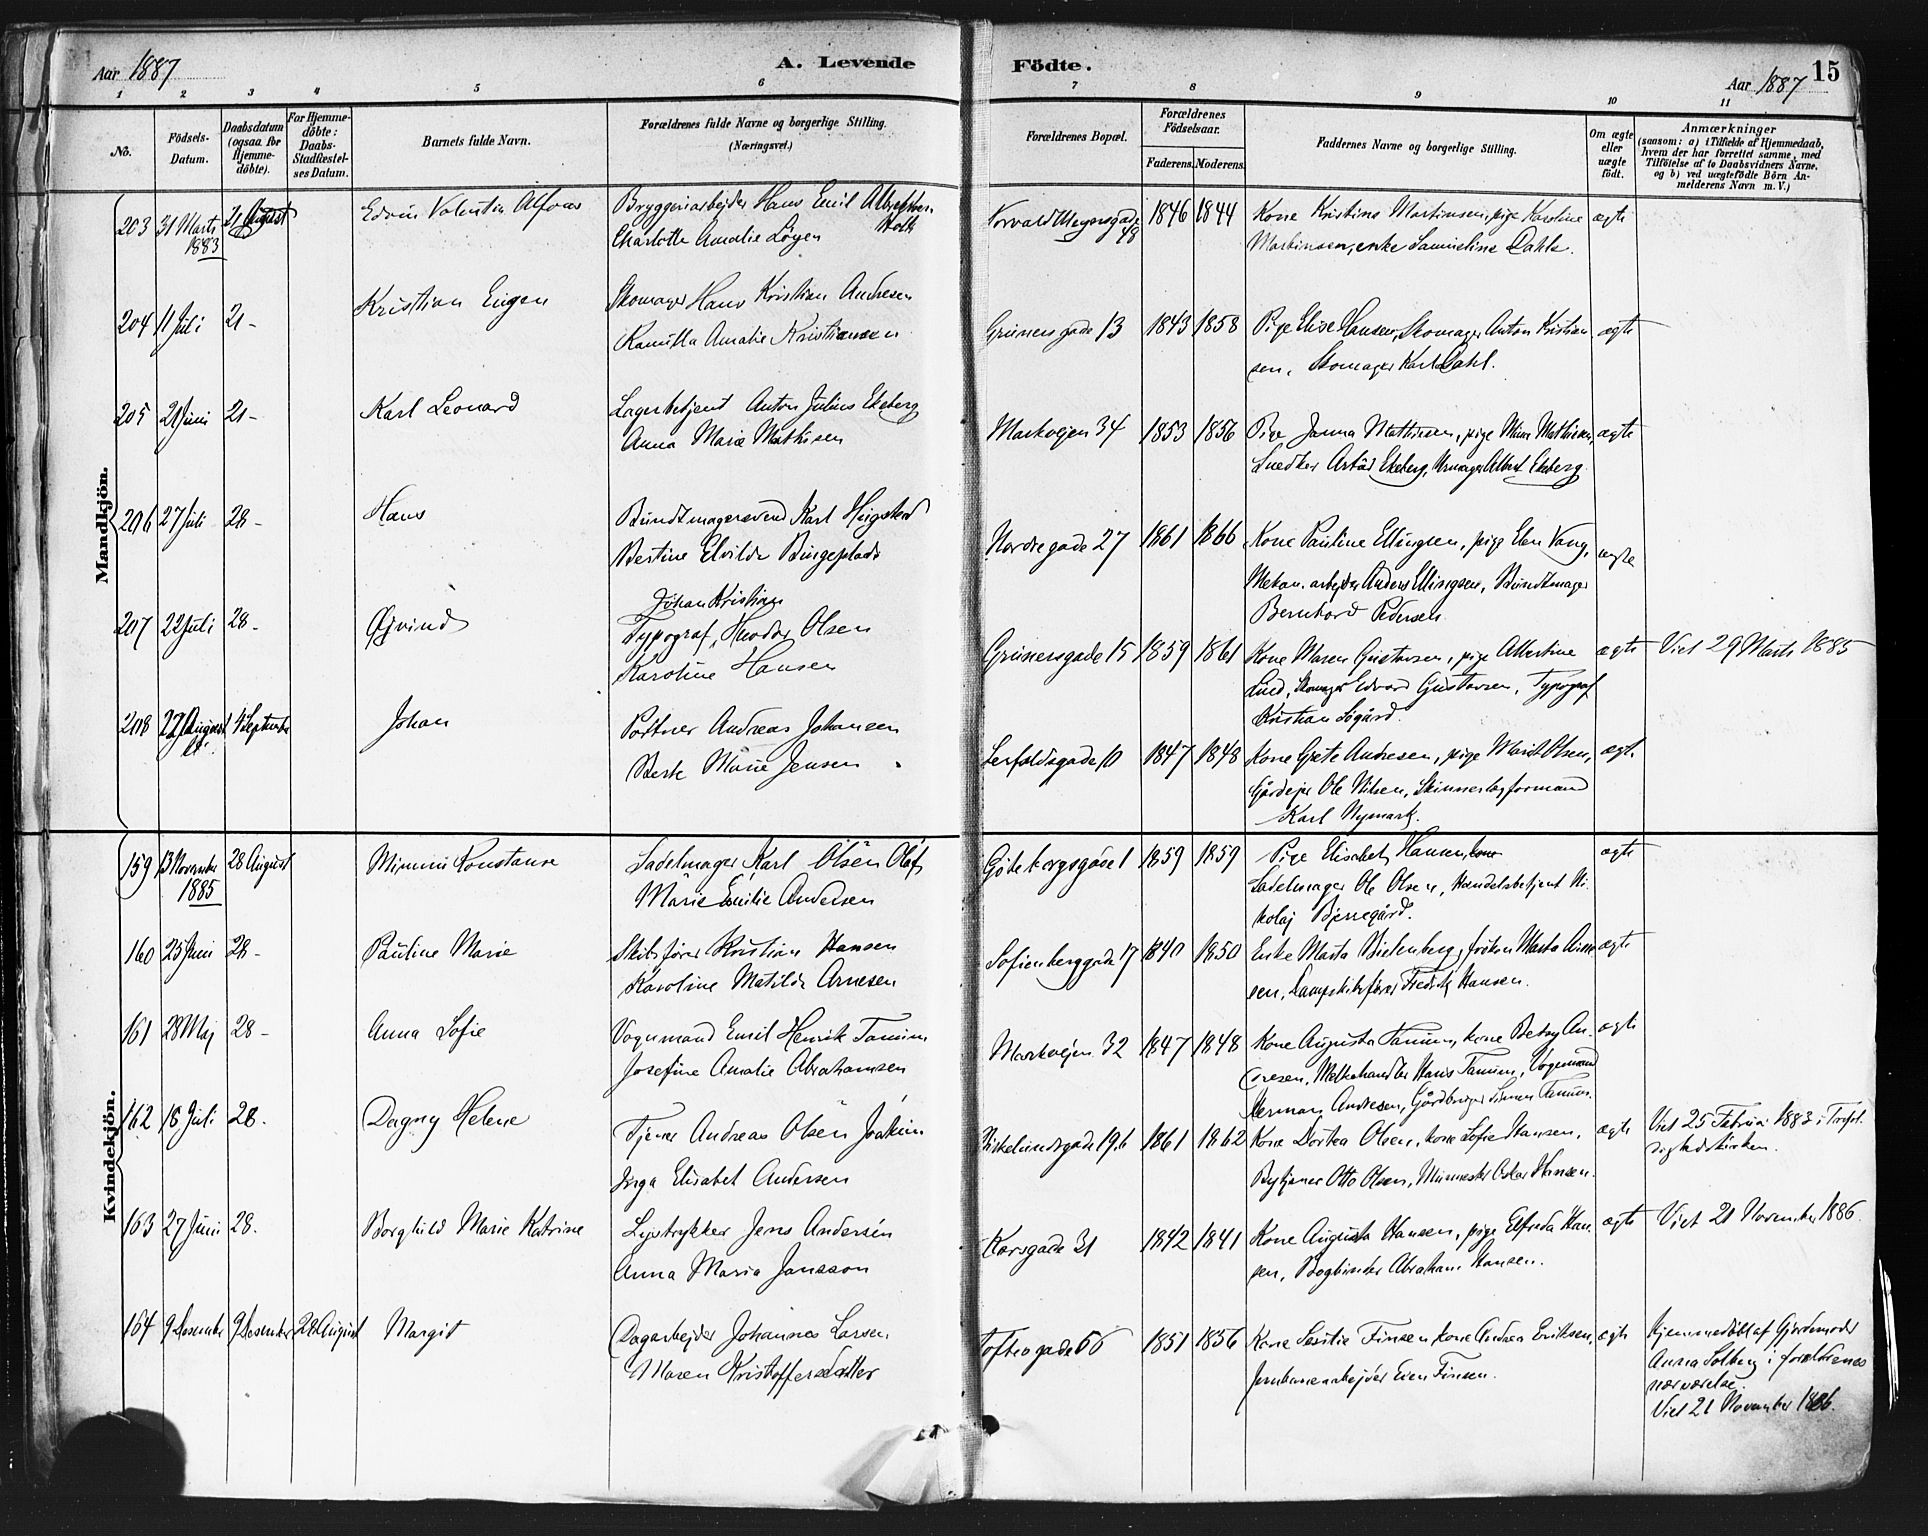 Aar 1887
A. Levende Födte.
Aar 1887
15
1 2 3 4 5 6 7 8 9 10 11
No.
Födsels-Datum.
Daabsdatum (ogsaa for Hjemme-döbte).
For Hjemme-döbte: Daabs-Stadfæstel-ses Datum.
Barnets fulde Navn.
Forældrenes fulde Navne og borgerlige Stilling. (Næringsvei.)
Forældrenes Bopæl.
Forældrenes Födselsaar.
Faderens. Moderens.
Faddernes Navne og borgerlige Stilling.
Om ægte eller uægte födt.
Anmærkninger
(saasom: a) i Tilfælde af Hjemmedaab, hvem der har forrettet samme, med Tilföielse af to Daabsvidners Navne, og b) ved uægtefödte Börn Anmelderens Navn m. V.)
Mandkjön.
203 31 Marts 1883 21 August Edvin Valentin Alfons
Bryggeriarbejder Hans Emil Albrektsen Holt
Charlotte Amalie Löyen
Torvald Meyersgade 48 1846 1844
Kone Kristine Martinsen, pige Karoline
Martinsen, enke Samueline Dahle. ægte
204 11 Juli 21 - Kristian Eugen
Skomager Hans Kristian Andresen
Kamilla Amalie Kristiansen
Grünersgade 13 1843 1858
Pige Elise Hansen, Skomager Anton Kristian
sen, Skomager Karl Dahl. ægte
205 21 Juni 21 - Karl Leonard
Lagerbetjent Anton Julius Ekeberg
Anna Marie Mathisen
Markvejen 34 1853 1856
Pige Janna Mathisen, pige Mina Mathisen,
Snedker Ekeberg, Urmager Albert Ekeberg. ægte
206 27 Juli 28 - Hans
Bundtmagersvend Karl Høgstad
Bertine Elvilde Bingeplads
Nordregade 27 1861 1866
Kone Pauline Ellingsen, pige Elen Vang,
Mekan. arbejder Anders Ellingsen, Bundtmager
Bernhard Pedersen. ægte
207 22 Juli 28 - Øjvind
Johan Kristian
Typograf, Theodor Olsen
Karoline Hansen
Grünersgade 15 1859 1861
Kone Maren Gustavsen, pige Albertine
Lind, Skomager Edvard Gustavsen, Typograf
Kristian Sögård. ægte
Viet 29 Marts 1885
208 22 August 4 September Johan
Portner Andreas Johansen
Berte Marie Jensen
Leirfaldsgade 10 1847 1848
Kone Grete Andresen, pige Marit Olsen,
Gårdejer Ole Nilsen,
Karl Nymark. ægte
Kvindekjön.
159 13 November 1885 28 August Mimmi Konstanse
Sadelmager Karl Olsen Olaf
Marie Emilie Andersen
Göteborgsgade 1 1859 1859
Pige Elisabet Hansen, kone
Sadelmager Ole Olsen, Handelsbetjent Ni-
kolaj Bjerregård. ægte
160 25 Juni 28 - Pauline Marie
Skibsförer Kristian Hansen
Karoline Matilde Arnesen
Sofienberggade 17 1840 1850
Enke Marta Bielenberg, fröken Marta Arne
sen, Dampskibsförer Fredrik Hansen. ægte
161 28 Maj 28 - Anna Sofie
Vognmand Emil Henrik Tanum
Josefine Amalie Abrahamsen
Markvejen 32 1847 1848
Kone Augusta Tanum, kone Betsy An-
dresen, Melkehandler Hans Tanum, Vognmand
Herman Andresen, Gårdbruger Simen Tanum. ægte
162 18 Juli 28. Dagny Helene
Tjener Andreas Olsen Joakim
Inga Elisabet Andersen
Birkelundsgade 19b 1861 1862
Kone Dortea Olsen, kone Sofie Hansen,
Bytjener Otto Olsen, Murmester Oskar Hansen. ægte
Viet 25 Februar 1883 i Trefol-
dighedskirken.
163 27 Juni 28. Borghild Marie Katrine
Lystrykker Jens Andersén
Anna Maria Jansson
Korsgade 31 1842 1841
Kone Augusta Hansen, pige Elfreda Han-
sen, Bogbinder Abraham Hansen. ægte
Viet 21 November 1886.
164 9 Desember 9 Desember 28 August Margit
Dagarbejder Johannes Larsen
Maren Kristoffersdatter
Toftesgade 66 1851 1856
Kone Sesilie Finsen kone Andrea Eriksen,
Jernbanearbejder Even Finsen. ægte
Hjemmedöbt af Gjordemoder
Anna Solberg i forældrenes
nærværelse.
Viet 21 November 1886.